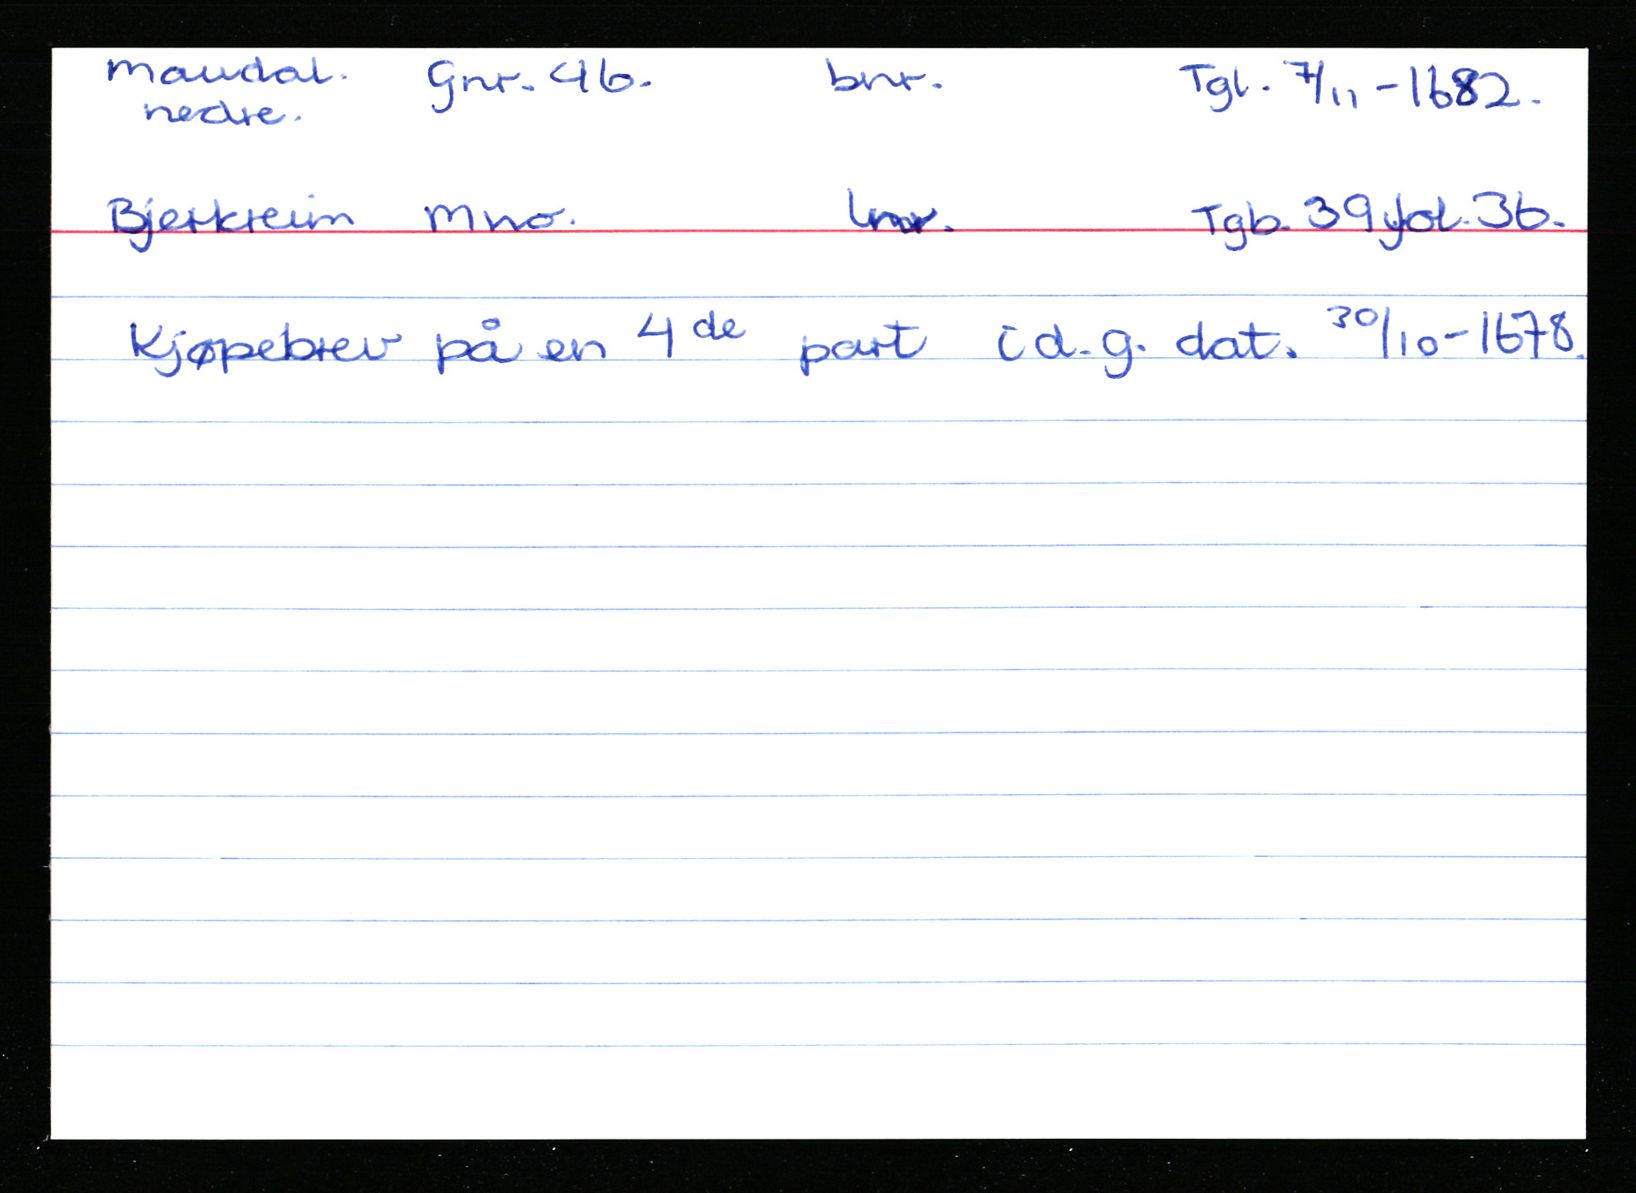 Maudal. Gnr. 46. bnr. Tgl. 7/11-1682.
nedre.
Bjerkreim Mno. lnr. Tgb. 39 fol. 36.
Kjøpebrev på en 4de part i d. g. dat. 30/10-1678.